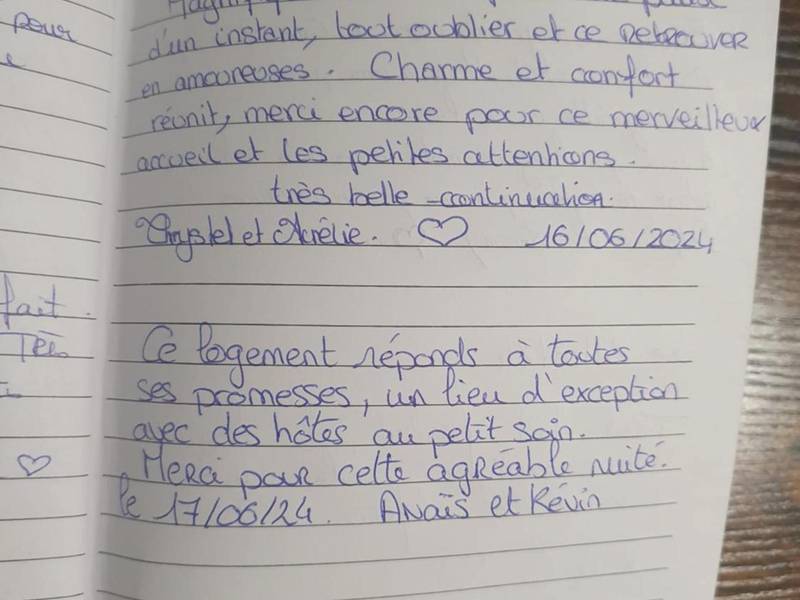 pour
d'un instant, tout oublier et ce retrouver
en amoureuses. Charme et confort
réunit, merci encore pour ce merveilleux
accueil et les petites attentions.
très belle continuation.
Chrystel et Aurélie. ♡ 16/06/2024
fait.
♡
Ce logement réponds à toutes
ses promesses, un lieu d'exception
avec des hôtes au petit soin.
Merci pour cette agréable nuité.
le 17/06/24. Anaïs et Kévin